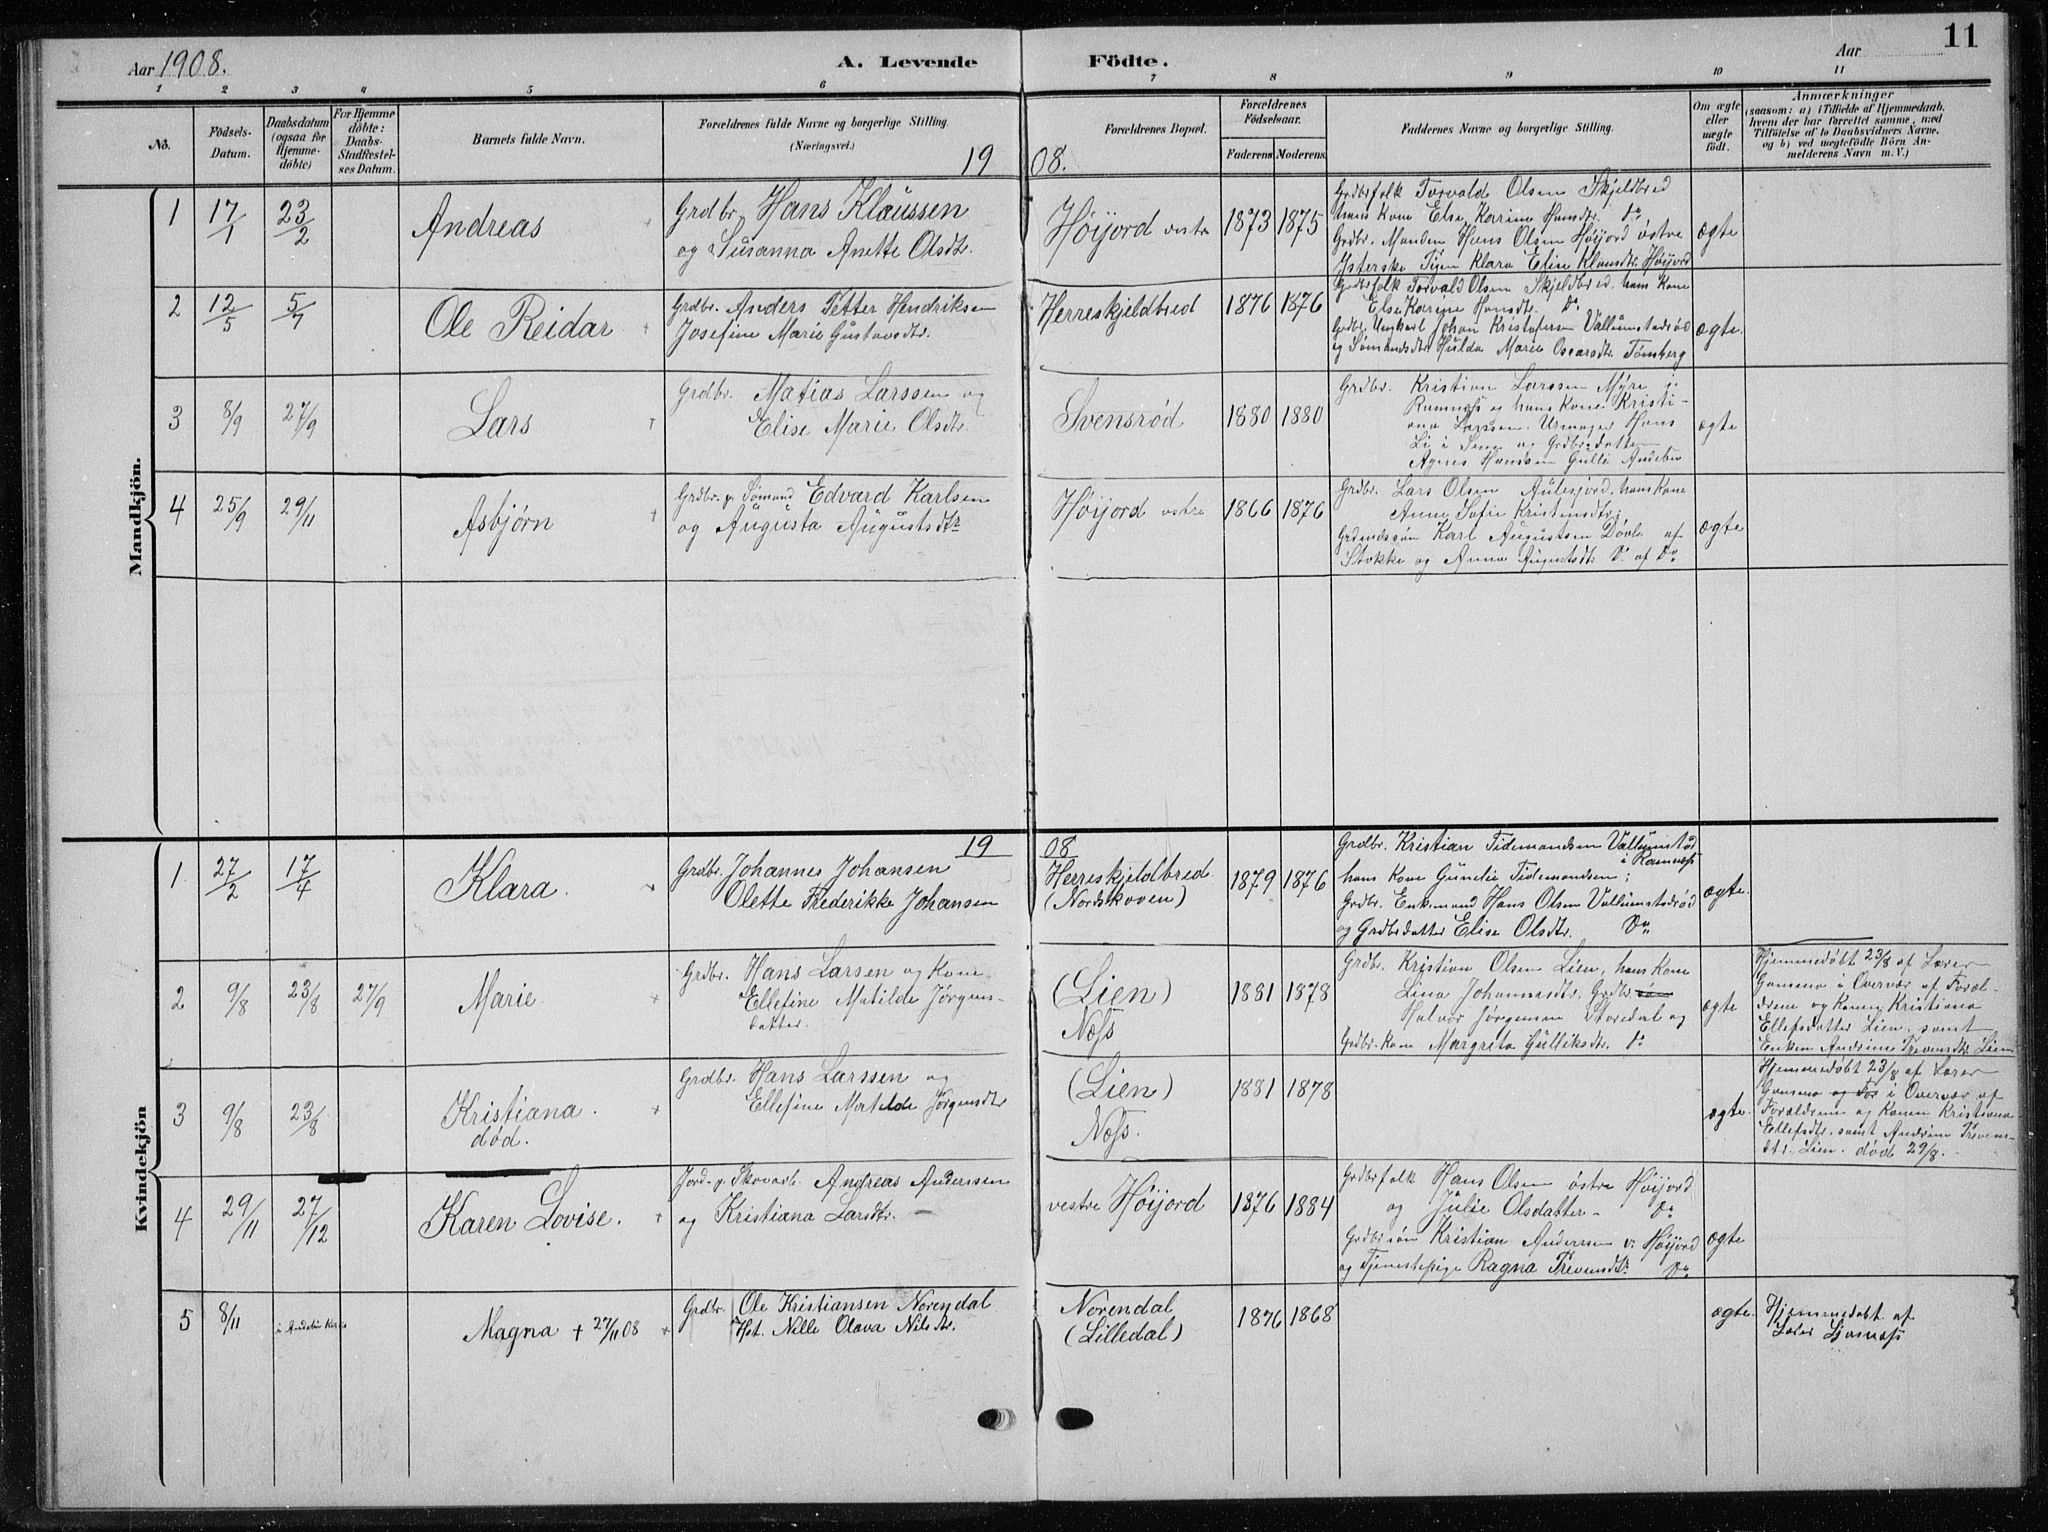 Aar 1908.
A. Levende Födte.
Aar
11
1 2 3 4 5 6 7 8 9 10 11
No.
Födsels-
Datum.
Daabsdatum
(ogsaa for
Hjemme-
döbte)
For Hjemme
döbte:
Daabs-
Stadfæstel-
ses Datum.
Barnets fulde Navn.
Forældrenes fulde Navne og borgerlige Stilling.
(Næringsvei.)
Forældrenes Bopæl.
Forældrenes
Födselsaar.
Faderens Moderens
Faddernes Navne og borgerlige Stilling.
Om ægte
eller
uægte
födt.
Anmærkninger
(saasom: a) i Tilfælde af Hjemmedaab,
hvem der har forrettet samme, med
Tilföielse af to Daabsvidners Navne,
og b) ved uægtefödte Börn An-
melderens Navn m. V.)
19 08.
Mandkjön.
1 17/1 23/2 Andreas
Grdbr. Hans Klaussen
og Susanna Anette Olsdtr.
Høijord vestre
1873 1875
Grdbrfolk Torvald Olsen Skjeldbred
hans Kone Else Karine Hansdtr. Do
Grdbr. Manden Hans Olsen Høijord østre
Pigen Klara Elise Klausdtr. Høijord
ægte
2 12/5 5/7 Ole Reidar
Grdbr. Anders Petter Hendriksen
Josefine Marie Gustavsdtr.
Herreskjeldbred
1876 1876
Grdbrfolk Torvald Olsen Skjeldbred, hans Kone
Else Karine Hansdtr. Do
Grdbr. Ungkarl Johan Kristofersen Vallumstadrød
og Sømandsdtr Hulda Marie Oscarsdtr. Tønsberg
ægte.
3 8/9 27/9 Lars
Grdbr. Matias Larssen og
Elise Marie Olsdtr.
Svensrød
1880 1880
Grdbr. Kristian Larssen Myre i
Ramnæs og hans Kone Kristi-
ana Larssen. Urmager Hans
Li i Sem og Grdbr.datter
Agnes Hanssen Gulli Andebu
ægte
4 25/9 29/11 Asbjørn
Grdbr. og Sømand Edvard Karlsen
og Augusta Augustsdtr
Høijord østre
1866 1876
Grdbr. Lars Olsen Aulesjord, hans Kone
Anne Sofie Kristensdtr;
Grdmdssøn Karl Augustsen Døvle af
Stokke og Anna Augustsdtr Do af Do
ægte
Kvindekjön
19 08
1 27/2 17/4 Klara.
Grdbr. Johannes Johansen
Olette Frederikke Johansen
Herreskjeldbred
(Nordskoven)
1879 1876
Grdbr. Kristian Tidemandsen Vallumstød
i Ramnæs
hans Kone Gunelie Tidemandsen;
Grdbr. Enkemand Hans Olsen Vallumstadrød
og Grdbrdatter Elise Olsdtr. Do
ægte.
2 9/8 23/8 27/9 Marie
Grdbr. Hans Larsen og Kone
Ellefine Matilde Jørgens-
datter.
(Lien)
Næss
1881 1878
Grdbr. Kristian Olsen Lien, hans Kone
Lina Johannesdtr. Grdbr.
Halvor Jørgensen Storedal og
Grdbr.kone Margrete Gulliksdtr. Do
ægte
Hjemmedøbt 23/8 af Lærer
i Overvær af Foræl-
drene og Konen Kristiana
Ellefsdatter Lien, samt
Enken Andrine Trevensdtr. Lien
3 9/8 23/8 Kristiana.
død.
Grdbr. Hans Larssen og
Ellefine Matilde Jørgensdtr
(Lien)
Næss.
1881 1878
ægte.
Hjemmedøbt 23/8 af Lærer
og For i Overvær af
Forældrene og Konen Kristiana
Ellefsdtr. samt Andrine Trevens-
dtr. Lien. død 29/8.
4 29/11 27/12 Karen Lovise.
Jord- og Skovarb. Andreas Anderssen
og Kristiana Larsdtr.
vestre Høijord
1876 1884
Grdbrfolk Hans Olsen østre Høijord
og Julie Olsdatter Do
Grdbrsøn Kristian Anderssen v. Høijord
og Tjenestepige Ragna Trevensdtr. Do
ægte
5 8/11 i Andebu Kirke Magna + 27/11 08
Grdbr. Ole Kristiansen Norendal
Hst. Nille Olava Nilsdtr.
Norendal
(Lilledal)
1876 1868
ægte.
Hjemmedøbt af
Lærer